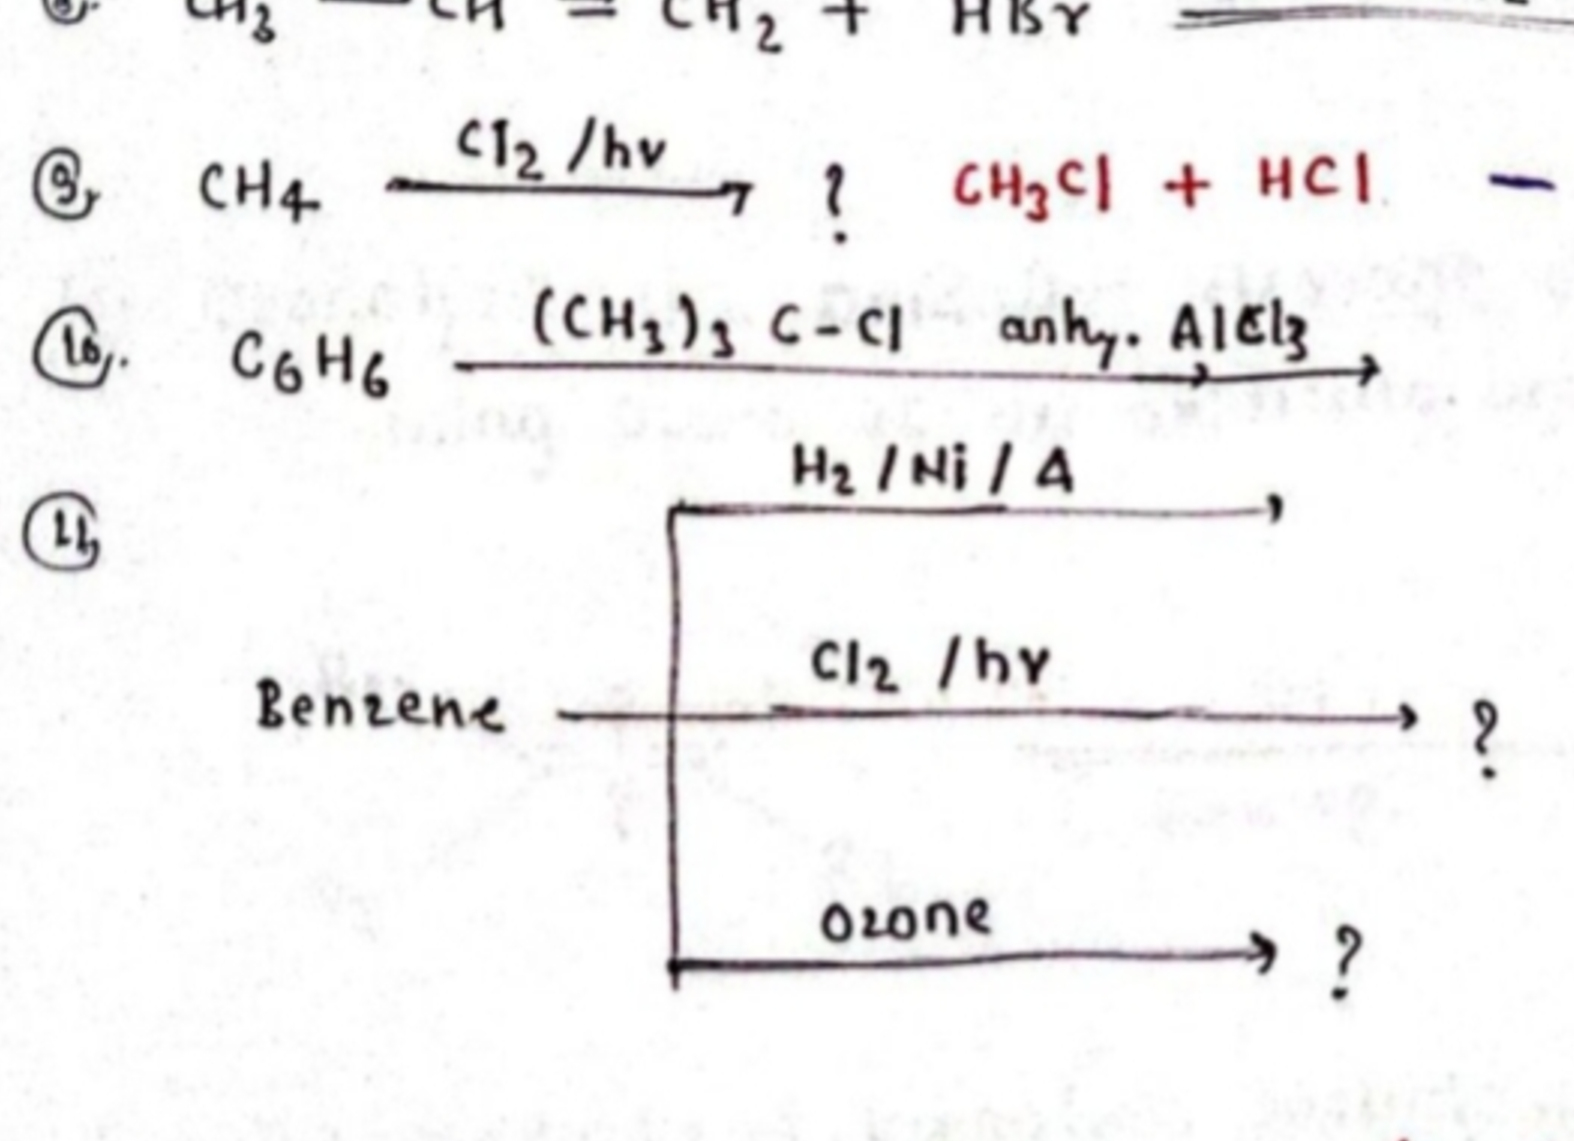 8. CH3 — CH = CH2 + HBr
9. CH4 Cl2 /hν → ? CH3Cl + HCl –
10. C6H6 (CH3)3 C-Cl anhy. AlCl3 →
11.
H2 / Ni / Δ →
Benzene Cl2 /hν → ?
Ozone → ?